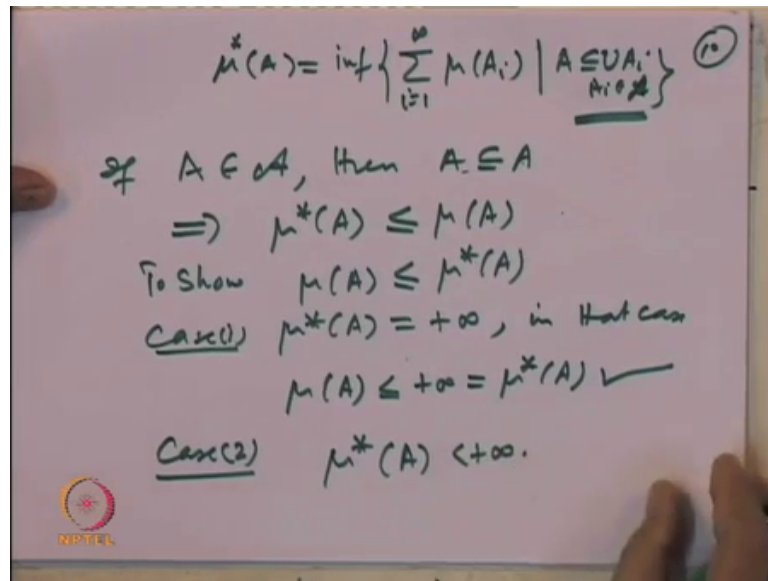 μ*(A) = inf { ∑_{i=1}^{∞} μ(A_i) | A ⊆ ∪A_i, A_i ∈ 𝒜 } (10)
If A ∈ 𝒜, then A ⊆ A
⟹ μ*(A) ≤ μ(A)
To Show μ(A) ≤ μ*(A)
Case(1) μ*(A) = +∞, in that case
μ(A) ≤ +∞ = μ*(A) ✓
Case(2) μ*(A) < +∞.
NPTEL